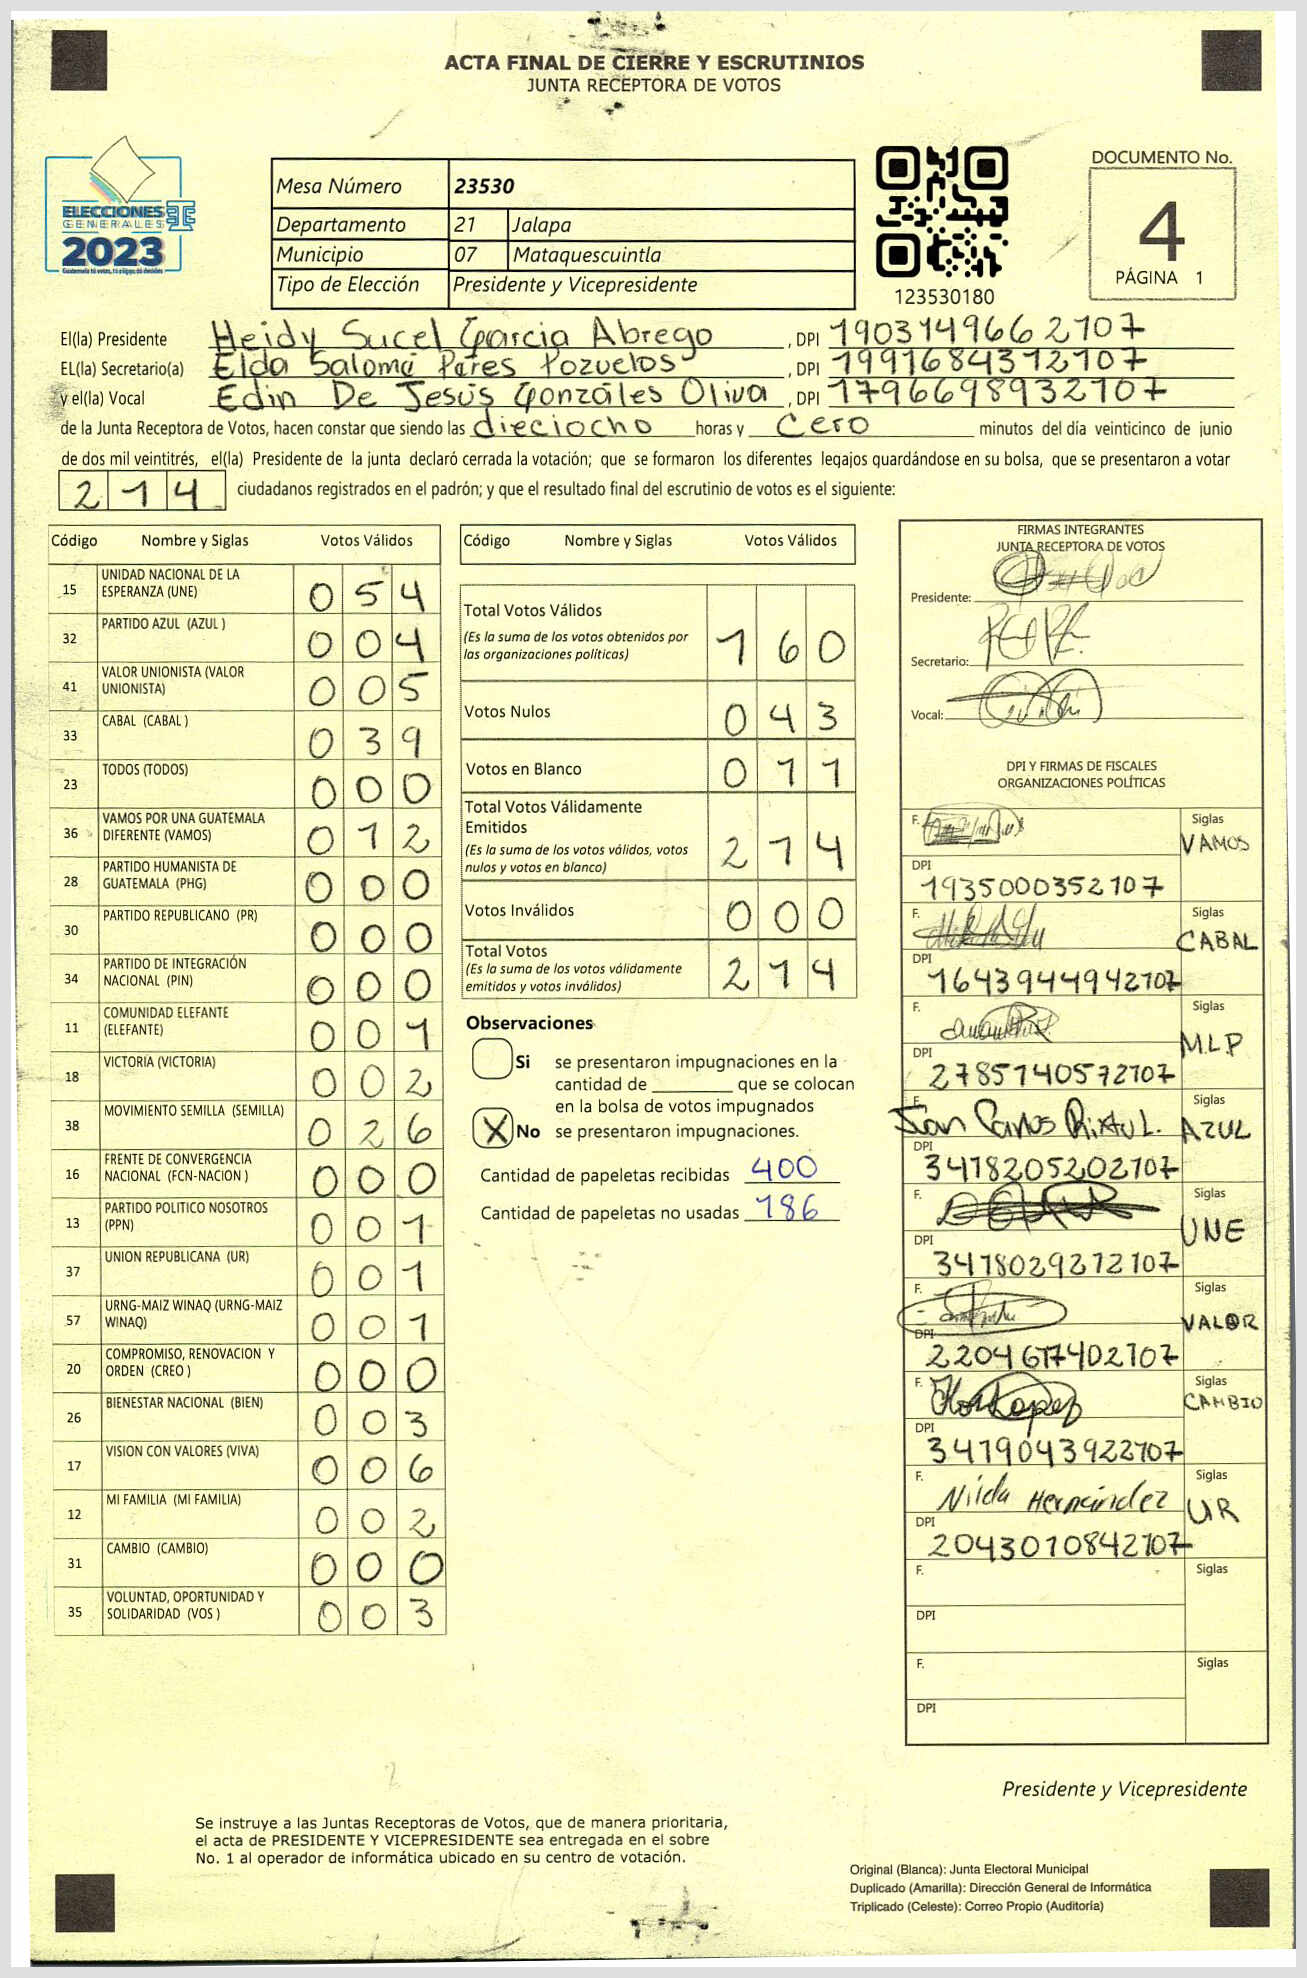 ACTA FINAL DE CIERRE Y ESCRUTINIOS
JUNTA RECEPTORA DE VOTOS
ELECCIONES
GENERALES
2023
Guatemala tú votas, tú eliges, tú decides
Mesa Número 23530
Departamento 21 Jalapa
Municipio 07 Mataquescuintla
Tipo de Elección Presidente y Vicepresidente
123530180
DOCUMENTO No.
4
PÁGINA 1
El(la) Presidente Heidy Sucel Garcia Abrego, DPI 1903149662107
EL(la) Secretario(a) Elda Salomé Pares Pozuelos, DPI 1991684312107
y el(la) Vocal Edin De Jesús Gonzáles Oliva, DPI 1796698932107
de la Junta Receptora de Votos, hacen constar que siendo las dieciocho horas y Cero minutos del día veinticinco de junio
de dos mil veintitrés, el(la) Presidente de la junta declaró cerrada la votación; que se formaron los diferentes legajos guardándose en su bolsa, que se presentaron a votar
214 ciudadanos registrados en el padrón; y que el resultado final del escrutinio de votos es el siguiente:
Código Nombre y Siglas Votos Válidos
15 UNIDAD NACIONAL DE LA ESPERANZA (UNE) 054
32 PARTIDO AZUL (AZUL ) 004
41 VALOR UNIONISTA (VALOR UNIONISTA) 005
33 CABAL (CABAL ) 039
23 TODOS (TODOS) 000
36 VAMOS POR UNA GUATEMALA DIFERENTE (VAMOS) 012
28 PARTIDO HUMANISTA DE GUATEMALA (PHG) 000
30 PARTIDO REPUBLICANO (PR) 000
34 PARTIDO DE INTEGRACIÓN NACIONAL (PIN) 000
11 COMUNIDAD ELEFANTE (ELEFANTE) 001
18 VICTORIA (VICTORIA) 002
38 MOVIMIENTO SEMILLA (SEMILLA) 026
16 FRENTE DE CONVERGENCIA NACIONAL (FCN-NACION ) 000
13 PARTIDO POLITICO NOSOTROS (PPN) 001
37 UNION REPUBLICANA (UR) 001
57 URNG-MAIZ WINAQ (URNG-MAIZ WINAQ) 001
20 COMPROMISO, RENOVACION Y ORDEN (CREO ) 000
26 BIENESTAR NACIONAL (BIEN) 003
17 VISION CON VALORES (VIVA) 006
12 MI FAMILIA (MI FAMILIA) 002
31 CAMBIO (CAMBIO) 000
35 VOLUNTAD, OPORTUNIDAD Y SOLIDARIDAD (VOS ) 003
Código Nombre y Siglas Votos Válidos
Total Votos Válidos 160
(Es la suma de los votos obtenidos por
las organizaciones políticas)
Votos Nulos 043
Votos en Blanco 011
Total Votos Válidamente
Emitidos 214
(Es la suma de los votos válidos, votos
nulos y votos en blanco)
Votos Inválidos 000
Total Votos 214
(Es la suma de los votos válidamente
emitidos y votos inválidos)
Observaciones
Si se presentaron impugnaciones en la
cantidad de ________ que se colocan
en la bolsa de votos impugnados
X No se presentaron impugnaciones.
Cantidad de papeletas recibidas 400
Cantidad de papeletas no usadas 186
FIRMAS INTEGRANTES
JUNTA RECEPTORA DE VOTOS
Presidente:
Secretario:
Vocal:
DPI Y FIRMAS DE FISCALES
ORGANIZACIONES POLÍTICAS
F. Siglas VAMOS
DPI 1935000352107
F. Siglas CABAL
DPI 1643944942107
F. Siglas M.L.P
DPI 2785140572107
F. Juan Carlos Rixtul. Siglas AZUL
DPI 3478205202107
F. Siglas UNE
DPI 3478029272107
F. Siglas VALOR
DPI 2204617402107
F. Siglas CAMBIO
DPI 3479043922107
F. Nilda Hernández Siglas UR
DPI 2043010842107
F. Siglas
DPI
F. Siglas
DPI
Presidente y Vicepresidente
Se instruye a las Juntas Receptoras de Votos, que de manera prioritaria,
el acta de PRESIDENTE Y VICEPRESIDENTE sea entregada en el sobre
No. 1 al operador de informática ubicado en su centro de votación.
Original (Blanca): Junta Electoral Municipal
Duplicado (Amarilla): Dirección General de Informática
Triplicado (Celeste): Correo Propio (Auditoría)